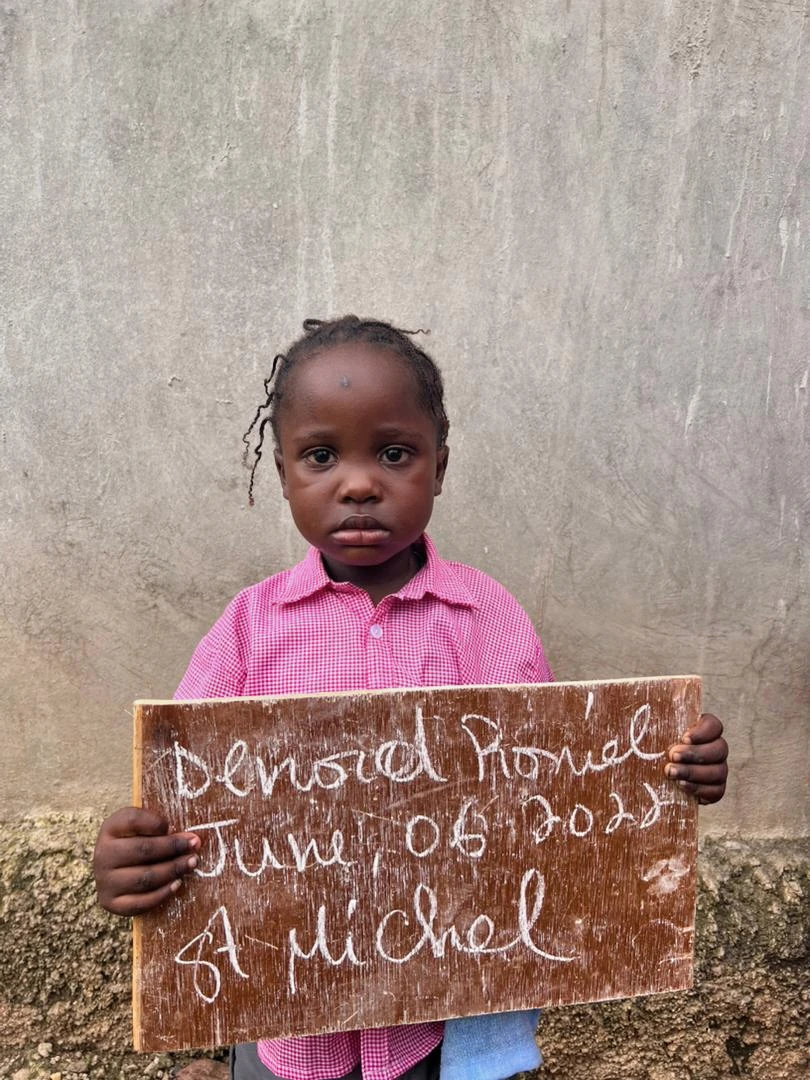 Denord Roniel
June, 06 2022
St Michel